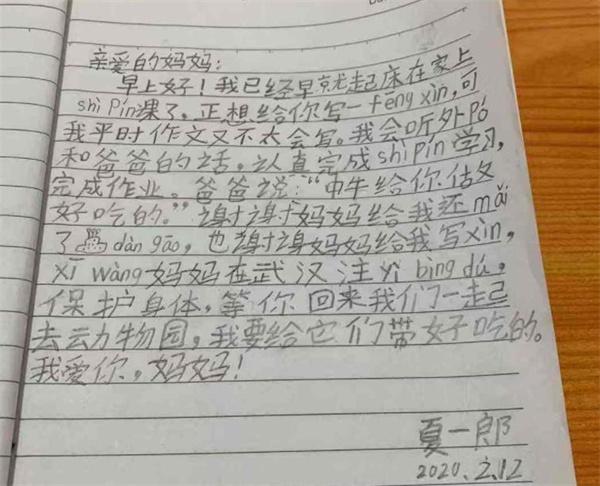 亲爱的妈妈：
早上好！我已经早就起床在家上
shì Pín课了。正想给你写一fēng xìn，可
我平时作文又不太会写。我会听外Pó
和爸爸的话。认真完成shì pín学习，
完成作业。爸爸说：“中午给你做
好吃的。”谢谢妈妈给我还mǎi
了dàn gāo，也谢谢妈妈给我写xìn，
xī wàng妈妈在武汉注yì bìng dú。
保护身体，等你回来我们一起
去动物园，我要给它们带好吃的。
我爱你，妈妈！
夏一郎
2020.2.12